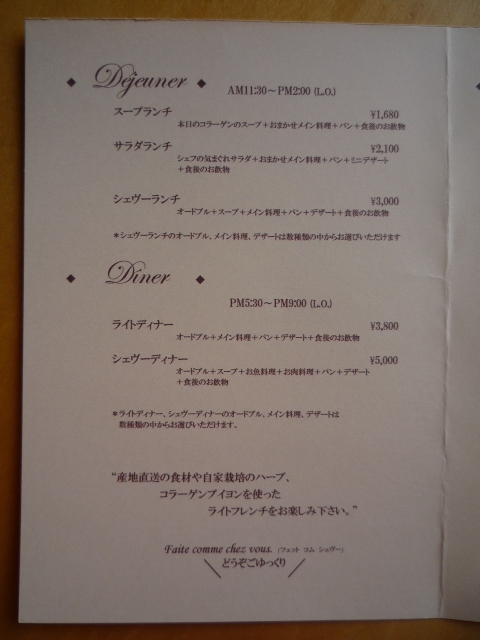 ◆ Dejeuner ◆ AM11:30～PM2:00 (L.O.)
スープランチ ¥1,680
本日のコラーゲンのスープ＋おまかせメイン料理＋パン＋食後のお飲物
サラダランチ ¥2,100
シェフの気まぐれサラダ＋おまかせメイン料理＋パン＋ミニデザート
＋食後のお飲物
シェヴーランチ ¥3,000
オードブル＋スープ＋メイン料理＋パン＋デザート＋食後のお飲物
＊シェヴーランチのオードブル、メイン料理、デザートは数種類の中からお選びいただけます
◆ Diner ◆
PM5:30～PM9:00 (L.O.)
ライトディナー ¥3,800
オードブル＋メイン料理＋パン＋デザート＋食後のお飲物
シェヴーディナー ¥5,000
オードブル＋スープ＋お魚料理＋お肉料理＋パン＋デザート
＋食後のお飲物
＊ライトディナー、シェヴーディナーのオードブル、メイン料理、デザートは
数種類の中からお選びいただけます。
“産地直送の食材や自家栽培のハーブ、
コラーゲンブイヨンを使った
ライトフレンチをお楽しみ下さい。”
Faite comme chez vous. (フェット コム シェヴー)
＼どうぞごゆっくり／